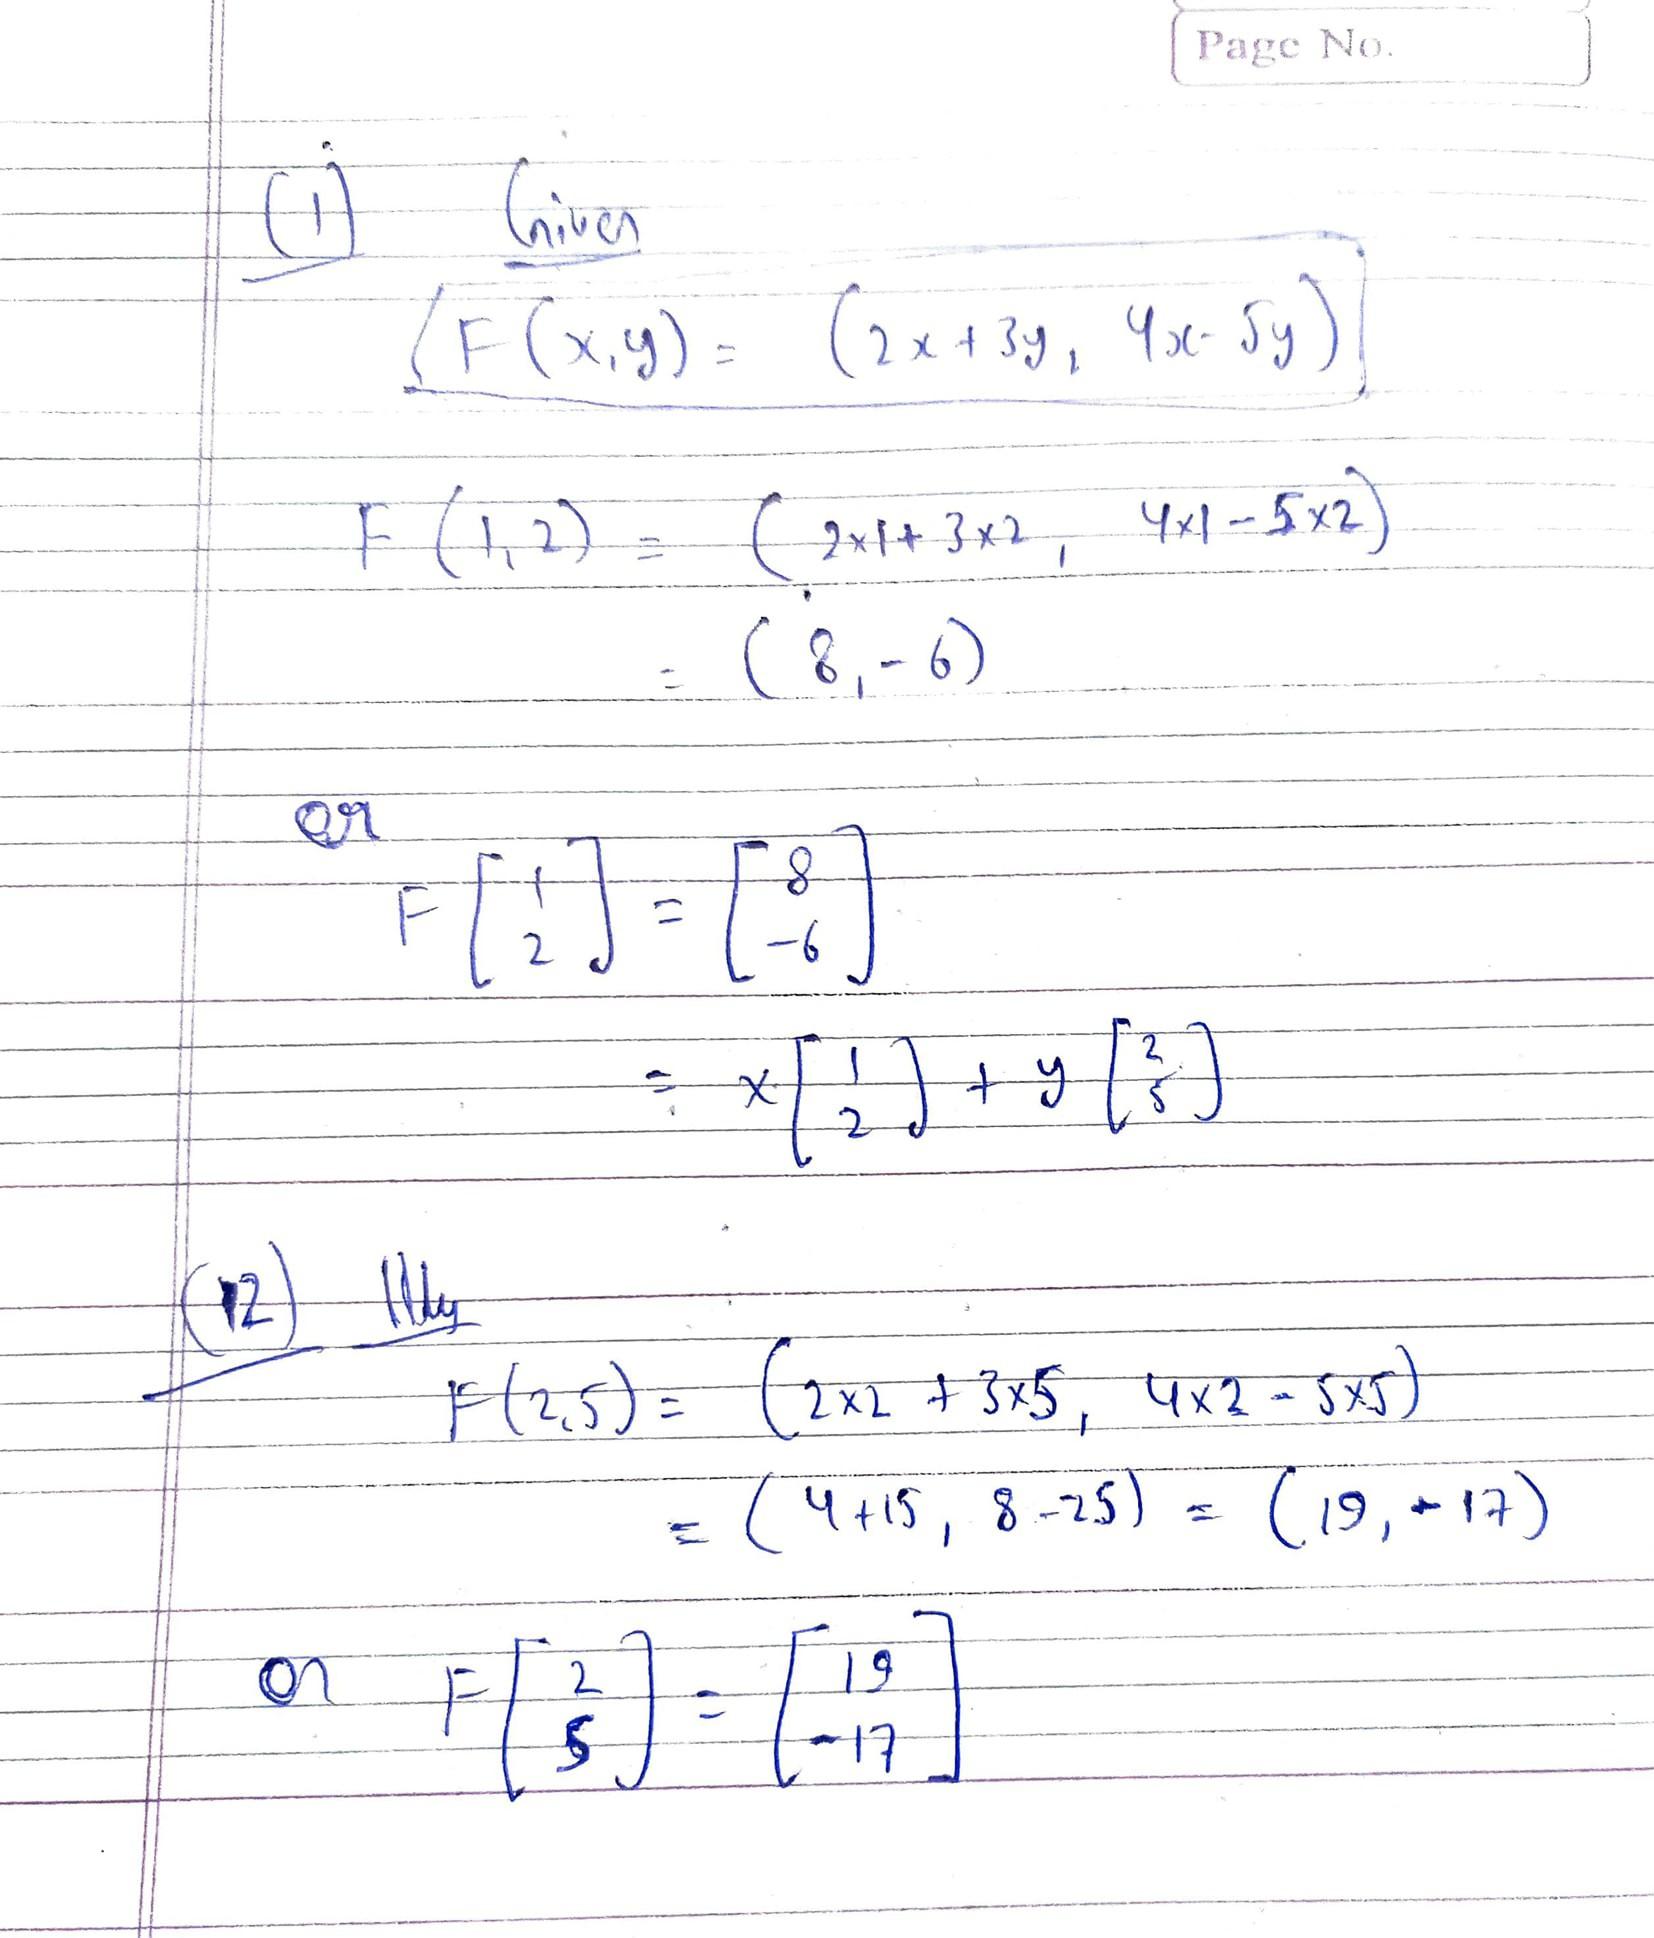 Page No.
(1) Given
F(x,y) = (2x+3y, 4x-5y)
F(1,2) = (2x1+3x2, 4x1-5x2)
= (8,-6)
or
F [1 2] = [8 -6]
= x [1 2] + y [2 5]
(12) Illly
F(2,5) = (2x2 + 3x5, 4x2 - 5x5)
= (4+15, 8-25) = (19, -17)
or F [2 5] = [19 -17]